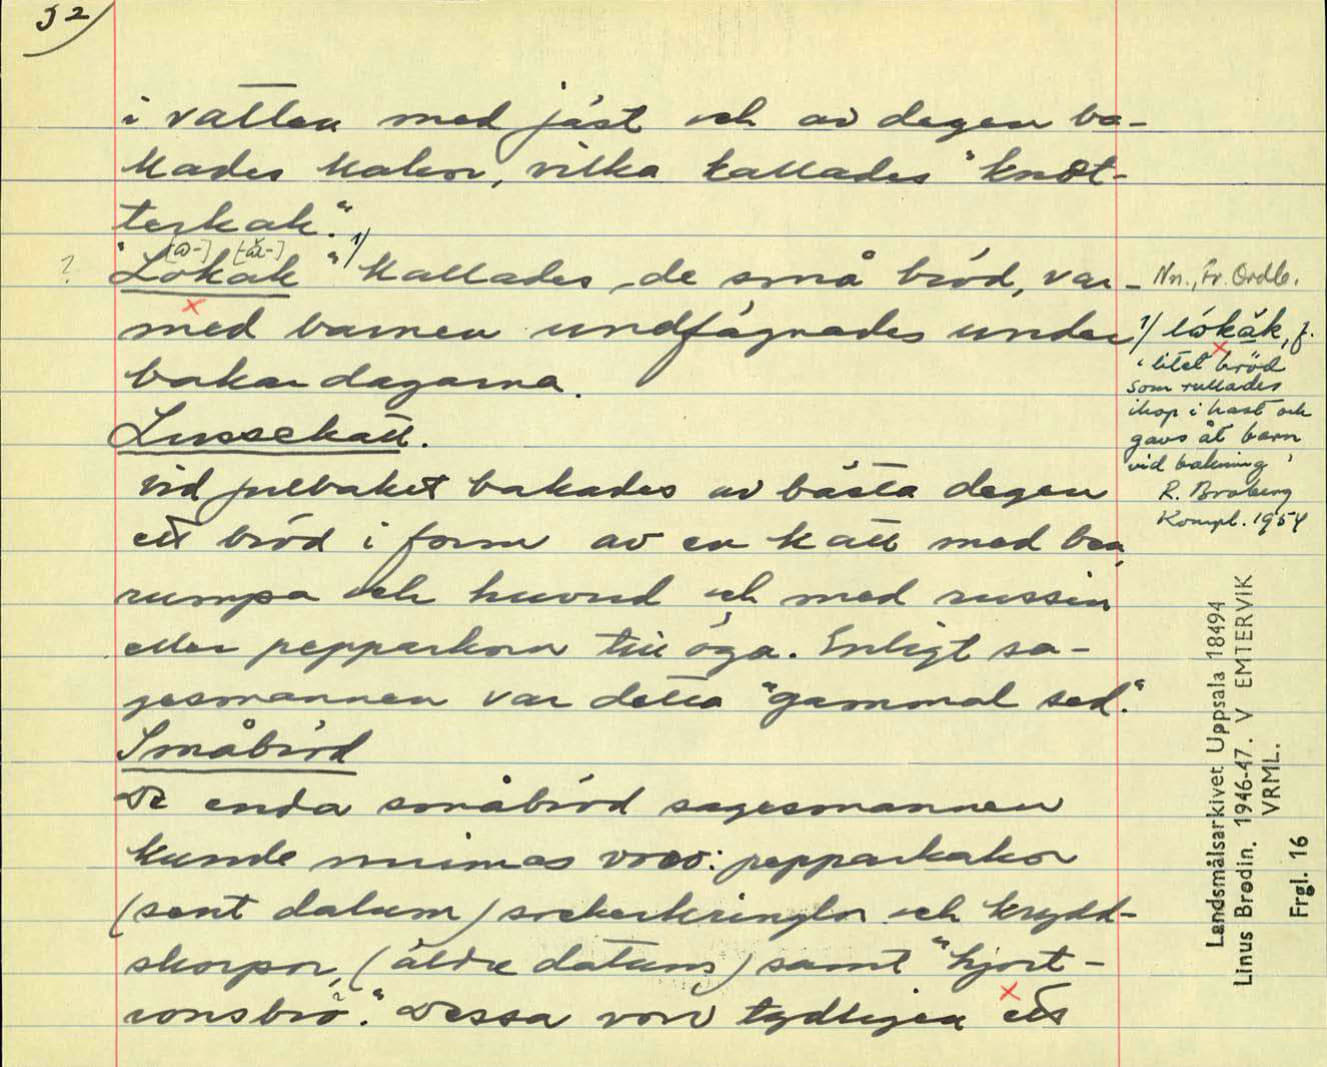 52)
i vatten med jäst och av degen ba-
kades kakor, vilka kallades "knöt-
terkak."
"Lokak" 1/ kallades de små bröd, var-
med barnen undfägnades under
bakardagarna.
Lussekatt.
Vid julbaket bakades av bästa degen
ett bröd i form av en katt med ben,
rumpa och huvud och med russin
eller pepparkorn till öga. Enligt sa-
gesmannen var detta "gammal sed."
Småbröd
De enda småbröd sagesmannen
kunde minnas voro: pepparkakor
(sent datum) sockerkringlor och krydd-
skorpor, (äldre datum) samt "hjort-
ronsbrö." Dessa voro tydligen ett
?
Nn., Fr. Ordb.
1/ lókăk, f.
'litet bröd
som rullades
ihop i hast och
gavs åt barn
vid bakning'
R. Broberg
Kompl. 1954
Landsmålsarkivet Uppsala 18494
Linus Brodin. 1946-47. V EMTERVIK
VRML.
Frgl. 16